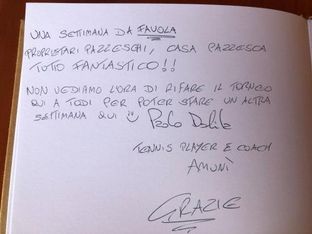 UNA SETTIMANA DA FAVOLA
PROPRIETARI PAZZESCHI, CASA PAZZESCA
TUTTO FANTASTICO!!
NON VEDIAMO L'ORA DI RIFARE IL TORNEO
QUI A TODI PER POTER STARE UN'ALTRA
SETTIMANA QUI
TENNIS PLAYER E COACH
AMUNÌ
GRAZIE